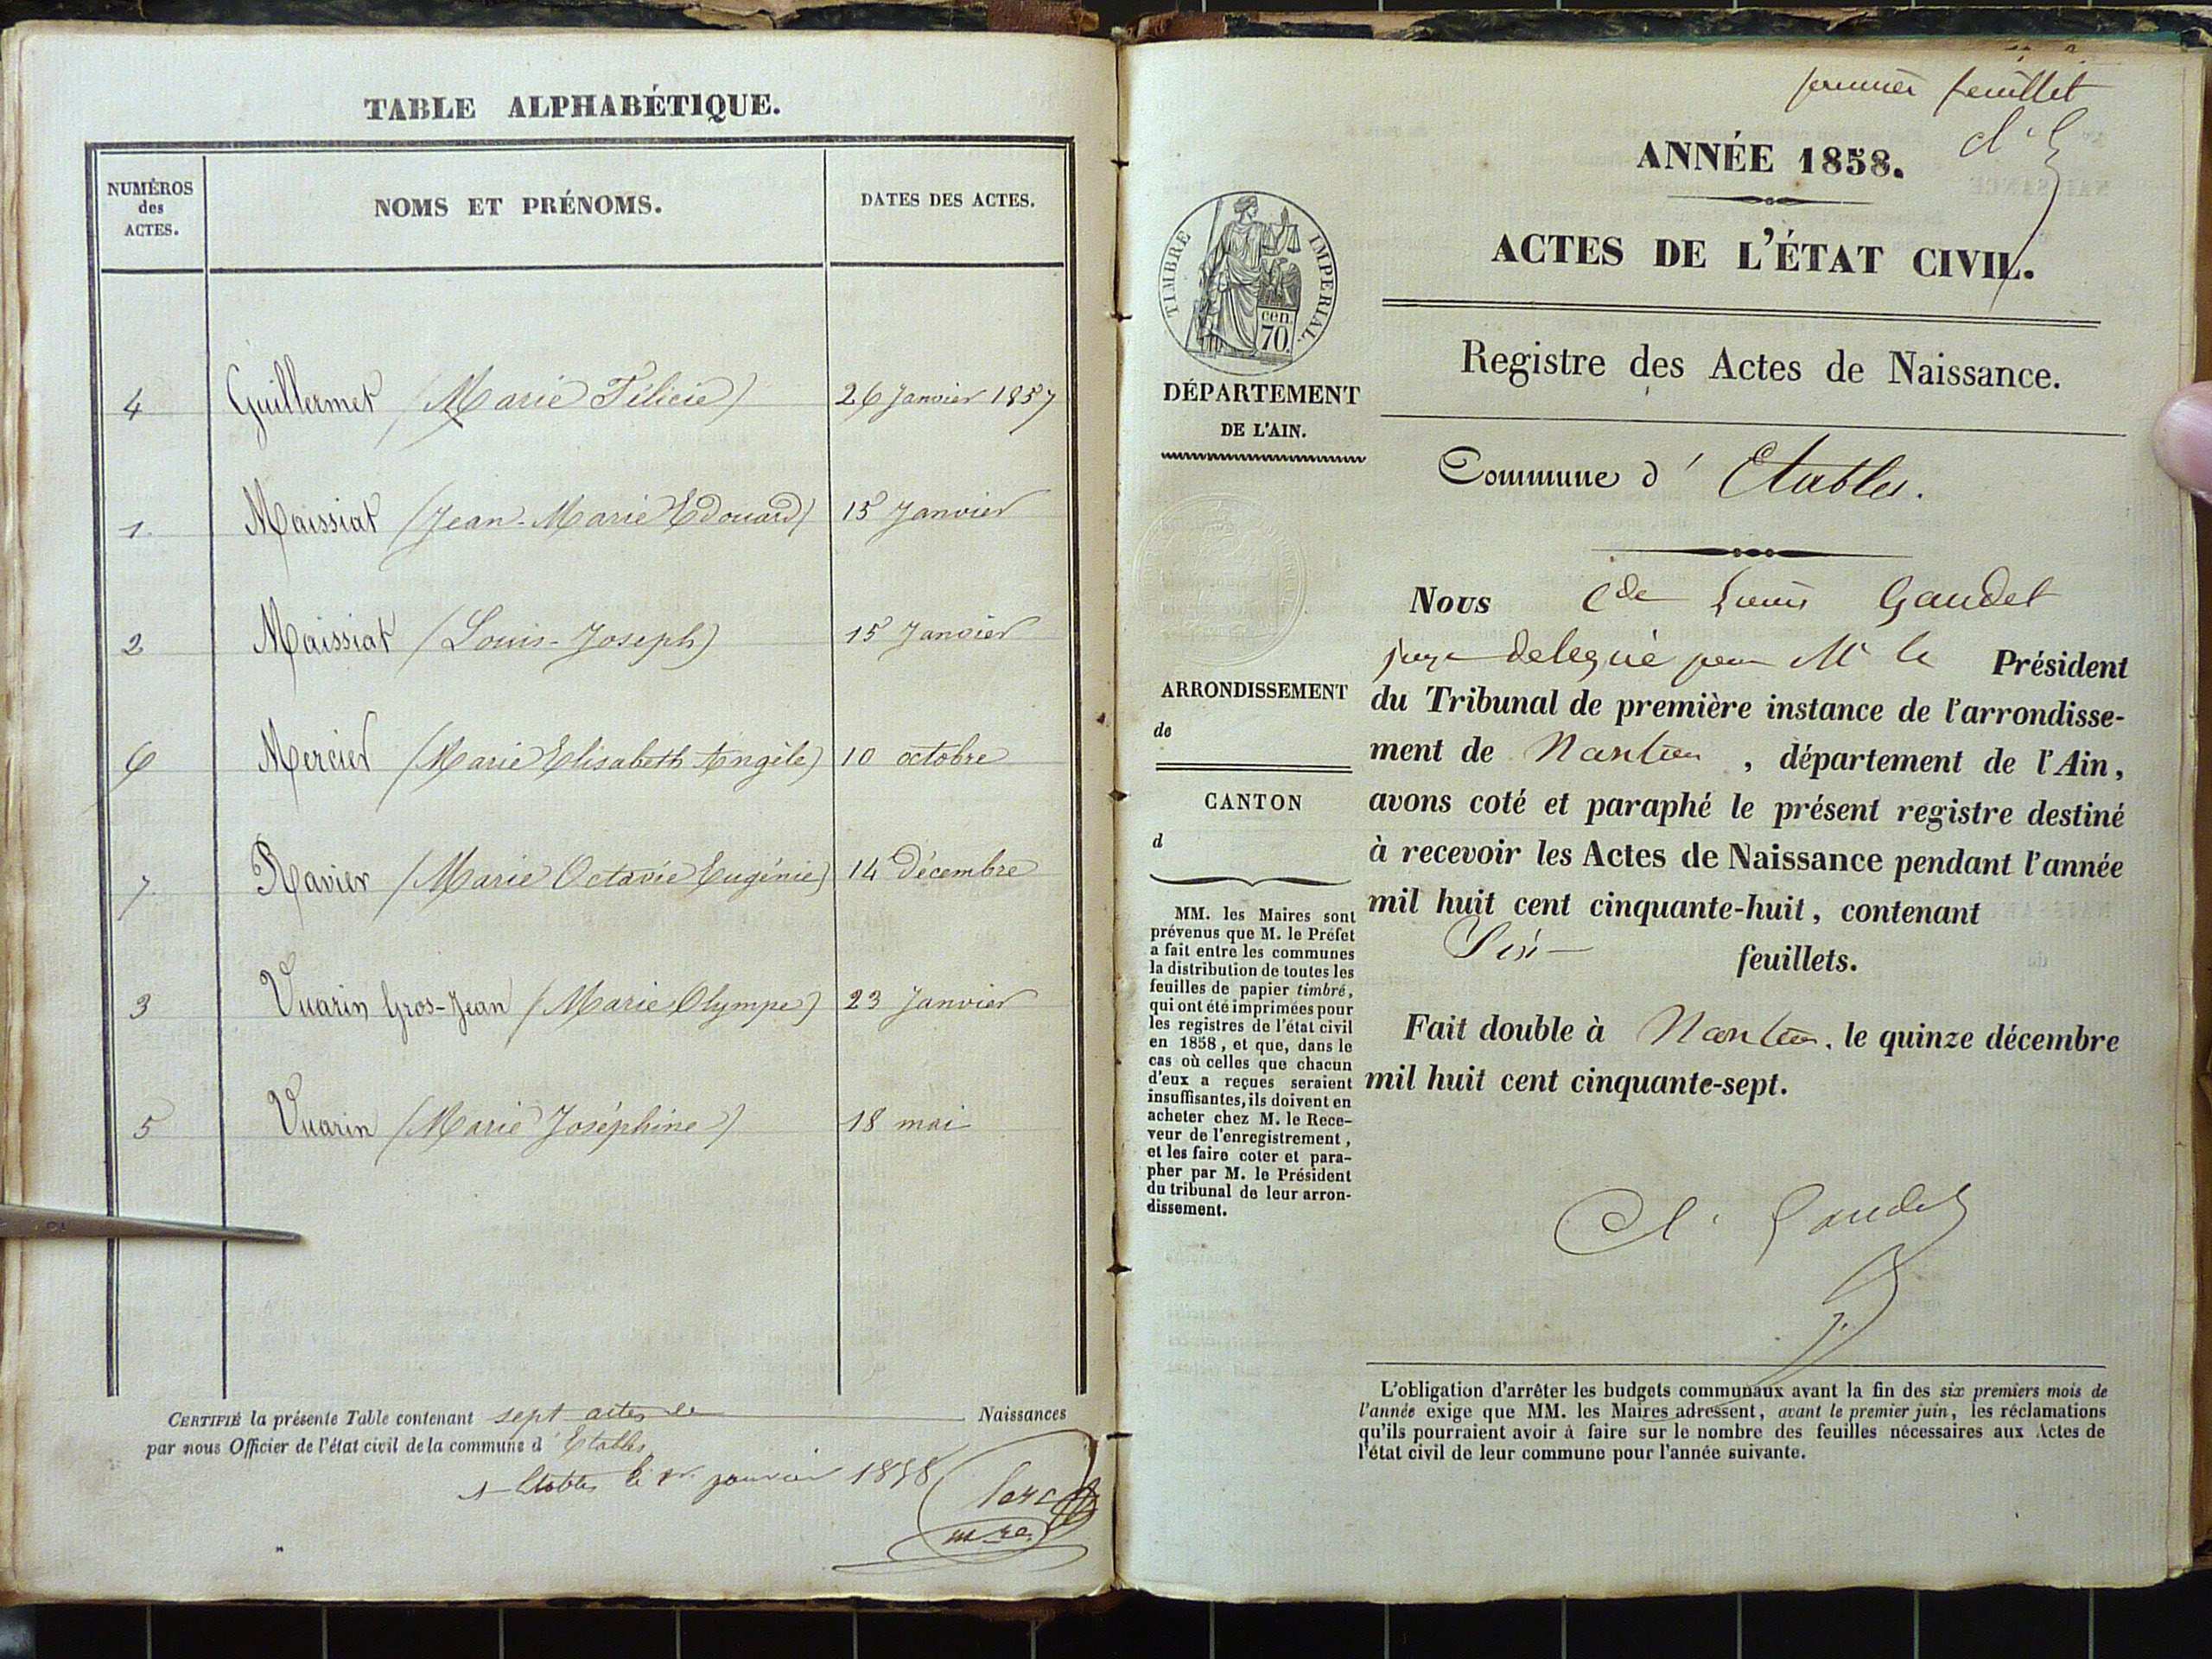 TABLE ALPHABÉTIQUE.
NUMÉROS
des
ACTES.
NOMS ET PRÉNOMS.
DATES DES ACTES.
4 Guillermet (Marie Félicie) 26 Janvier 1857
1. Maissiat (Jean-Marie Edouard) 15 Janvier
2 Maissiat (Louis-Joseph) 15 Janvier
6 Mercier (Marie Elisabeth Angèle) 10 octobre
7. Ravier (Marie Octavie Eugénie) 14 Décembre
3 Vuarin Gros-Jean (Marie Olympe) 23 Janvier
5 Vuarin (Marie Joséphine) 18 mai
CERTIFIÉ la présente Table contenant sept actes de Naissances
par nous Officier de l'état civil de la commune d'Etables
A Etables le 1er janvier 1858
premier feuillet
ANNÉE 1858.
ACTES DE L'ÉTAT CIVIL.
TIMBRE IMPÉRIAL.
cen.
70.
DÉPARTEMENT
DE L'AIN.
Registre des Actes de Naissance.
Commune d' Etables.
ARRONDISSEMENT
de
CANTON
d
MM. les Maires sont
prévenus que M. le Préfet
a fait entre les communes
la distribution de toutes les
feuilles de papier timbré,
qui ont été imprimées pour
les registres de l'état civil
en 1858, et que, dans le
cas où celles que chacun
d'eux a reçues seraient
insuffisantes, ils doivent en
acheter chez M. le Rece-
veur de l'enregistrement,
et les faire coter et para-
pher par M. le Président
du tribunal de leur arron-
dissement.
Nous Cde Louis Gaudet
juge delegué par Mr le Président
du Tribunal de première instance de l'arrondisse-
ment de Nantua, département de l'Ain,
avons coté et paraphé le présent registre destiné
à recevoir les Actes de Naissance pendant l'année
mil huit cent cinquante-huit, contenant
Six feuillets.
Fait double à Nantua, le quinze décembre
mil huit cent cinquante-sept.
Cl. Gaudet
L'obligation d'arrêter les budgets communaux avant la fin des six premiers mois de
l'année exige que MM. les Maires adressent, avant le premier juin, les réclamations
qu'ils pourraient avoir à faire sur le nombre des feuilles nécessaires aux Actes de
l'état civil de leur commune pour l'année suivante.